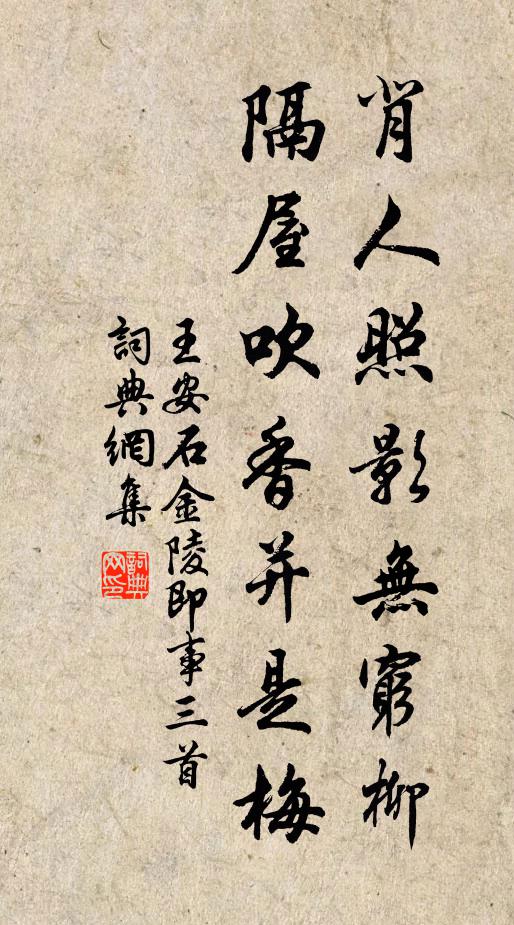 背人照影無窮柳
隔屋吹香并是梅
王安石金陵即事三首
詞典網集
詞典網印